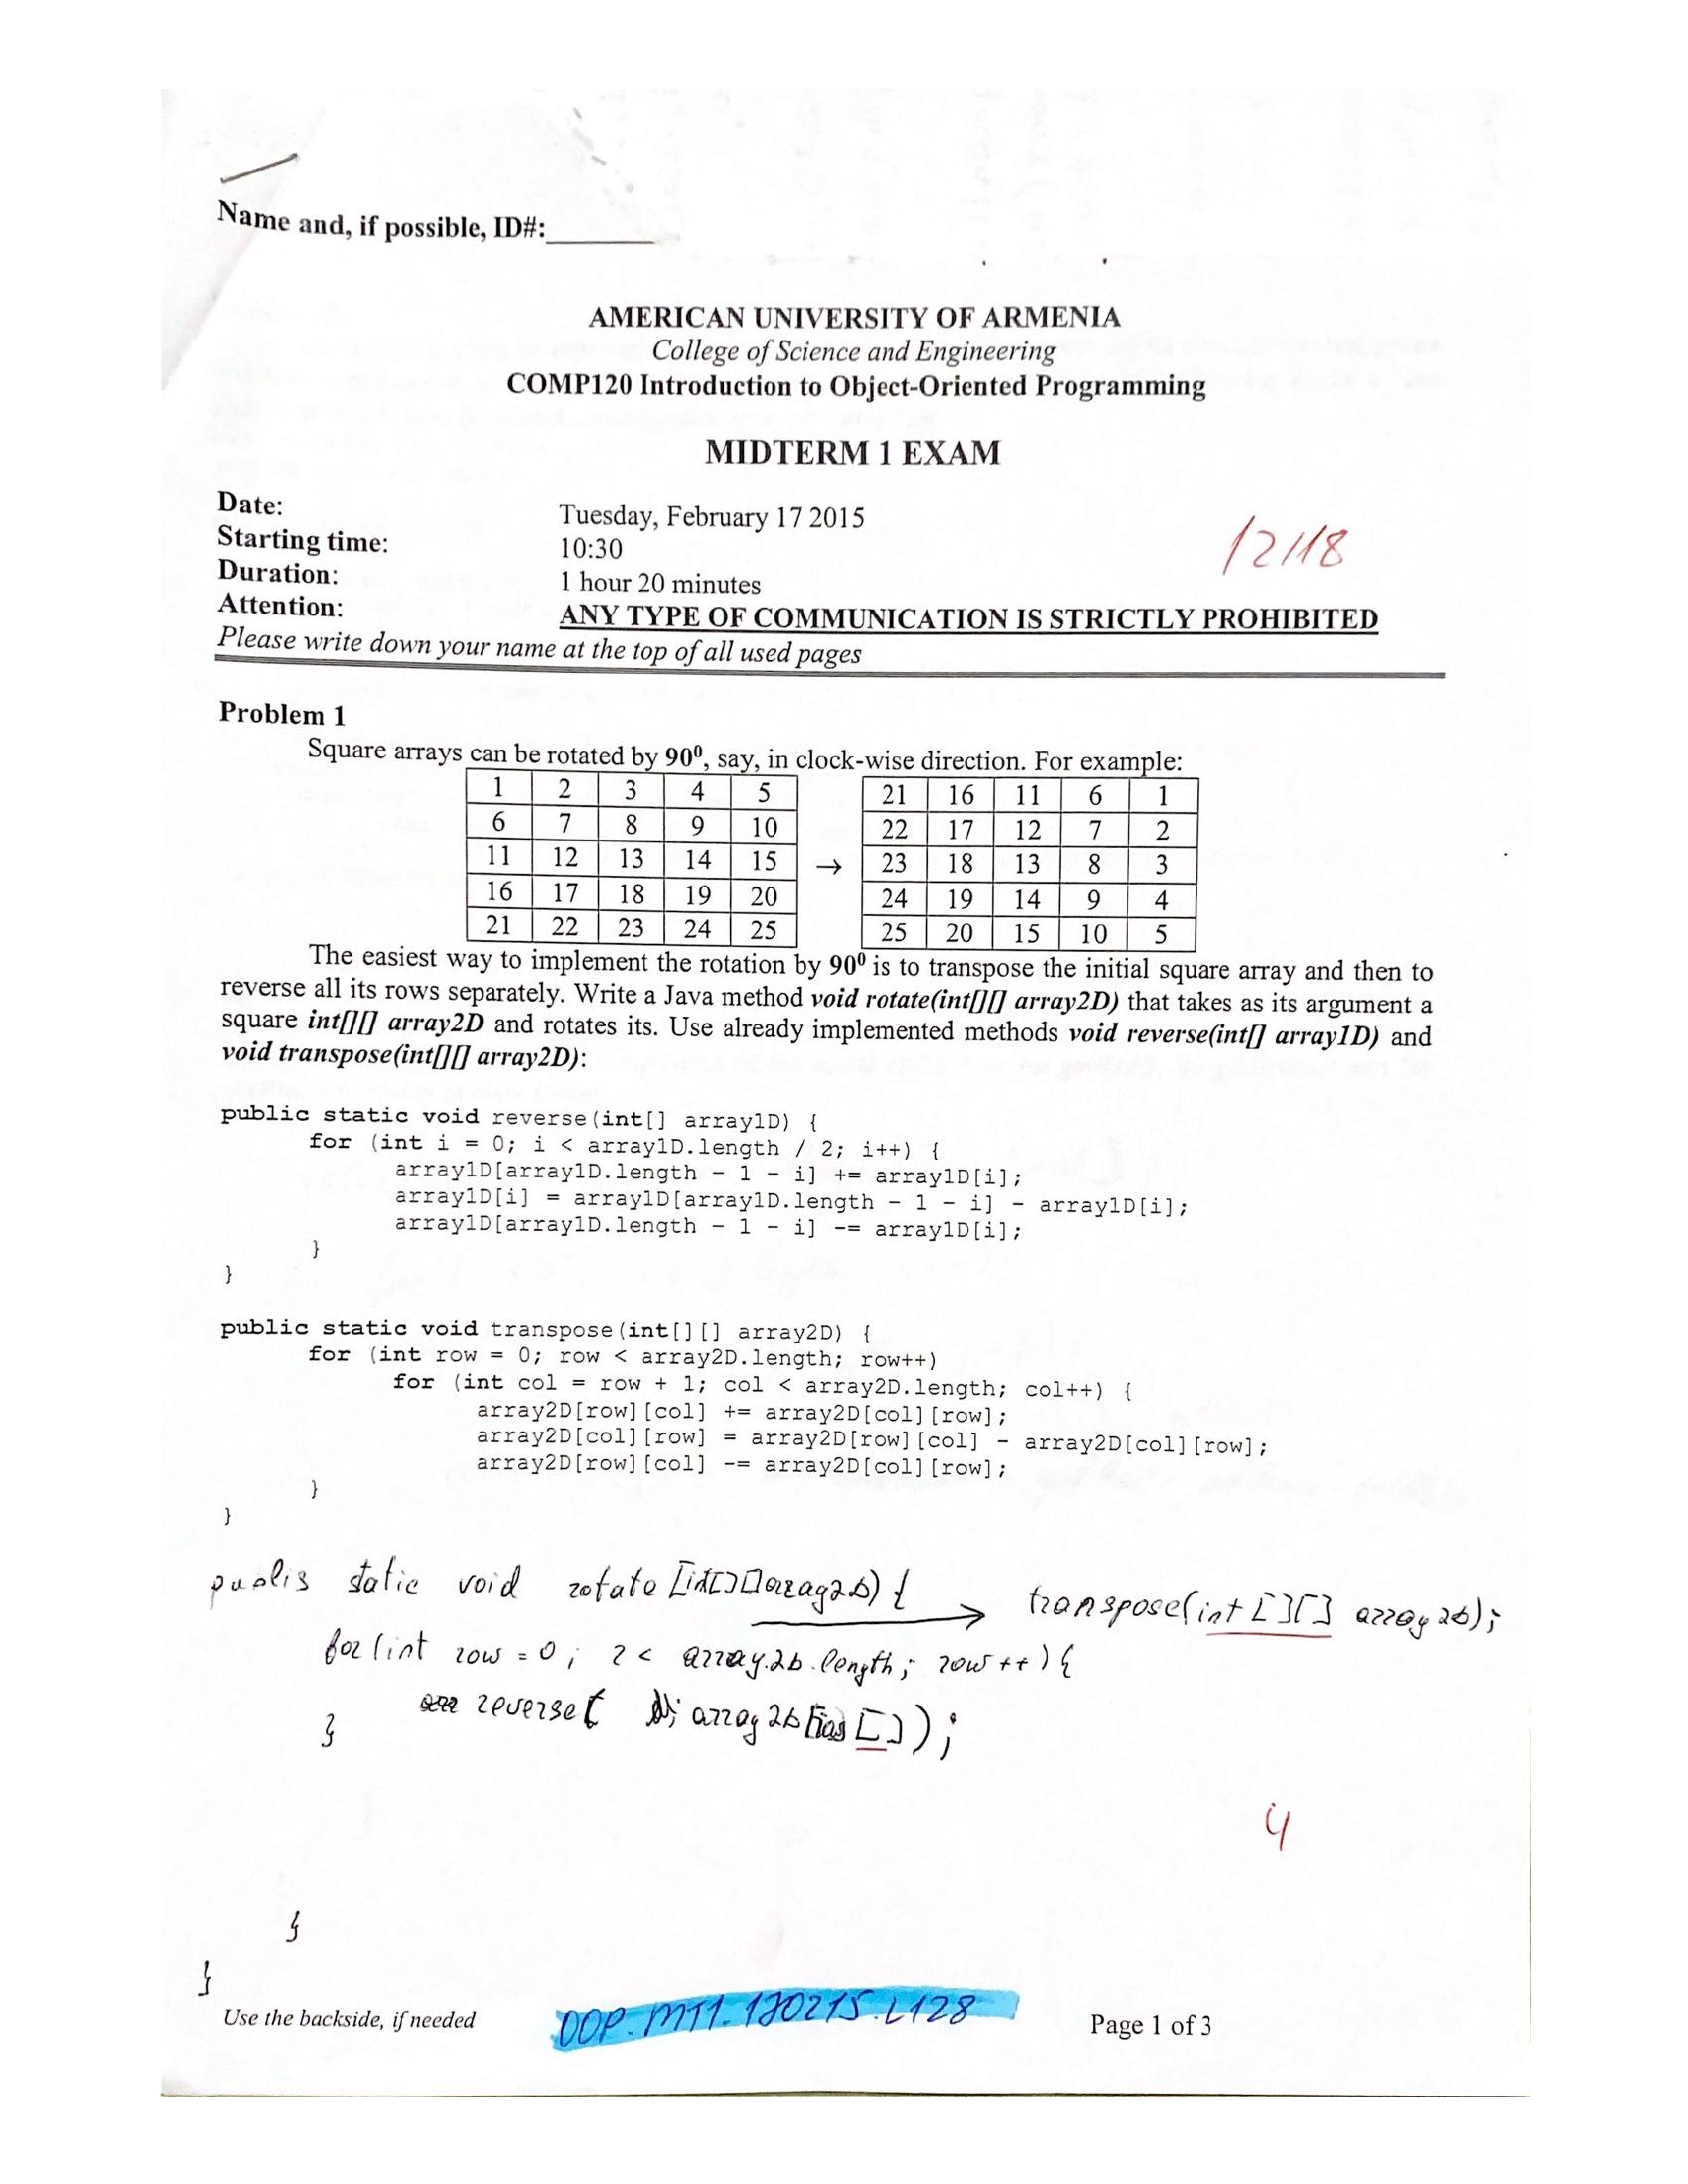 Name and, if possible, ID#:________
AMERICAN UNIVERSITY OF ARMENIA
College of Science and Engineering
COMP120 Introduction to Object-Oriented Programming
MIDTERM 1 EXAM
Date: Tuesday, February 17 2015
Starting time: 10:30
Duration: 1 hour 20 minutes
12/18
Attention: ANY TYPE OF COMMUNICATION IS STRICTLY PROHIBITED
Please write down your name at the top of all used pages
Problem 1
Square arrays can be rotated by 90⁰, say, in clock-wise direction. For example:
1 2 3 4 5 21 16 11 6 1
6 7 8 9 10 22 17 12 7 2
11 12 13 14 15 → 23 18 13 8 3
16 17 18 19 20 24 19 14 9 4
21 22 23 24 25 25 20 15 10 5
The easiest way to implement the rotation by 90⁰ is to transpose the initial square array and then to
reverse all its rows separately. Write a Java method void rotate(int[][] array2D) that takes as its argument a
square int[][] array2D and rotates its. Use already implemented methods void reverse(int[] array1D) and
void transpose(int[][] array2D):
public static void reverse(int[] array1D) {
for (int i = 0; i < array1D.length / 2; i++) {
array1D[array1D.length - 1 - i] += array1D[i];
array1D[i] = array1D[array1D.length - 1 - i] - array1D[i];
array1D[array1D.length - 1 - i] -= array1D[i];
}
}
public static void transpose(int[][] array2D) {
for (int row = 0; row < array2D.length; row++)
for (int col = row + 1; col < array2D.length; col++) {
array2D[row][col] += array2D[col][row];
array2D[col][row] = array2D[row][col] - array2D[col][row];
array2D[row][col] -= array2D[col][row];
}
}
static void rotate [int[][] array2D) { → transpose(int [][] array2D);
for (int row = 0; r < array2D.length; row++) {
reverse( array2D []);
}
4
}
}
Use the backside, if needed OOP.MT1.170215.L128 Page 1 of 3